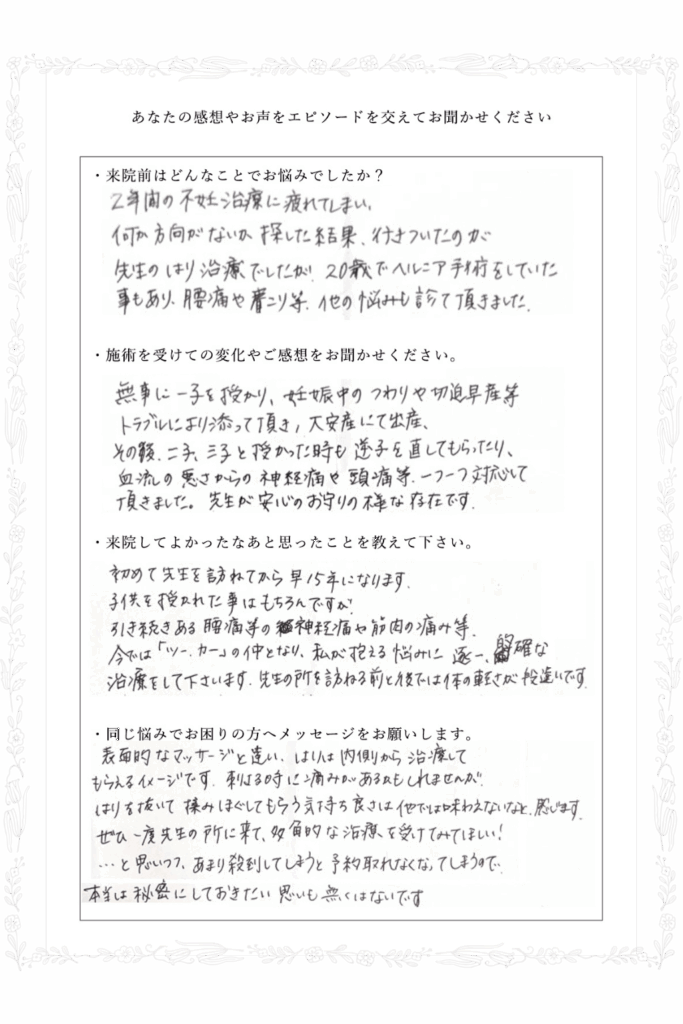 あなたの感想やお声をエピソードを交えてお聞かせください
・来院前はどんなことでお悩みでしたか？
2年間の不妊治療に疲れてしまい、
何か方向がないか探した結果、行きついたのが
先生のはり治療でしたが、20歳でヘルニア手術をしていた
事もあり、腰痛や肩こり等、他の悩みも診て頂きました。
・施術を受けての変化やご感想をお聞かせください。
無事に一子を授かり、妊娠中のつわりや切迫早産等
トラブルにより添って頂き、大安産にて出産、
その後、二子、三子と授かった時も逆子を直してもらったり、
血流の悪さからの神経痛や頭痛等、一つ一つ対応して
頂きました。先生が安心のお守りの様な存在です。
・来院してよかったなあと思ったことを教えて下さい。
初めて先生を訪ねてから早15年になります。
子供を授かれた事はもちろんですが、
引き続きある腰痛等の神経痛や筋肉の痛み等、
今では「ツー、カー」の仲となり、私が抱える悩みに逐一、確な
治療をして下さいます。先生の所を訪ねる前と後では体の軽さが段違いです。
・同じ悩みでお困りの方へメッセージをお願いします。
表面的なマッサージと違い、はりは内側から治療して
もらえるイメージです。刺さる時に痛みがあるかもしれませんが、
はりを抜いて揉みほぐしてもらう気持ち良さは他では味わえないなと、感じます。
ぜひ一度先生の所に来て、多角的な治療を受けてみてほしい！
…と思いつつ、あまり殺到してしまうと予約取れなくなってしまうので、
本当は秘密にしておきたい思いも無くはないです